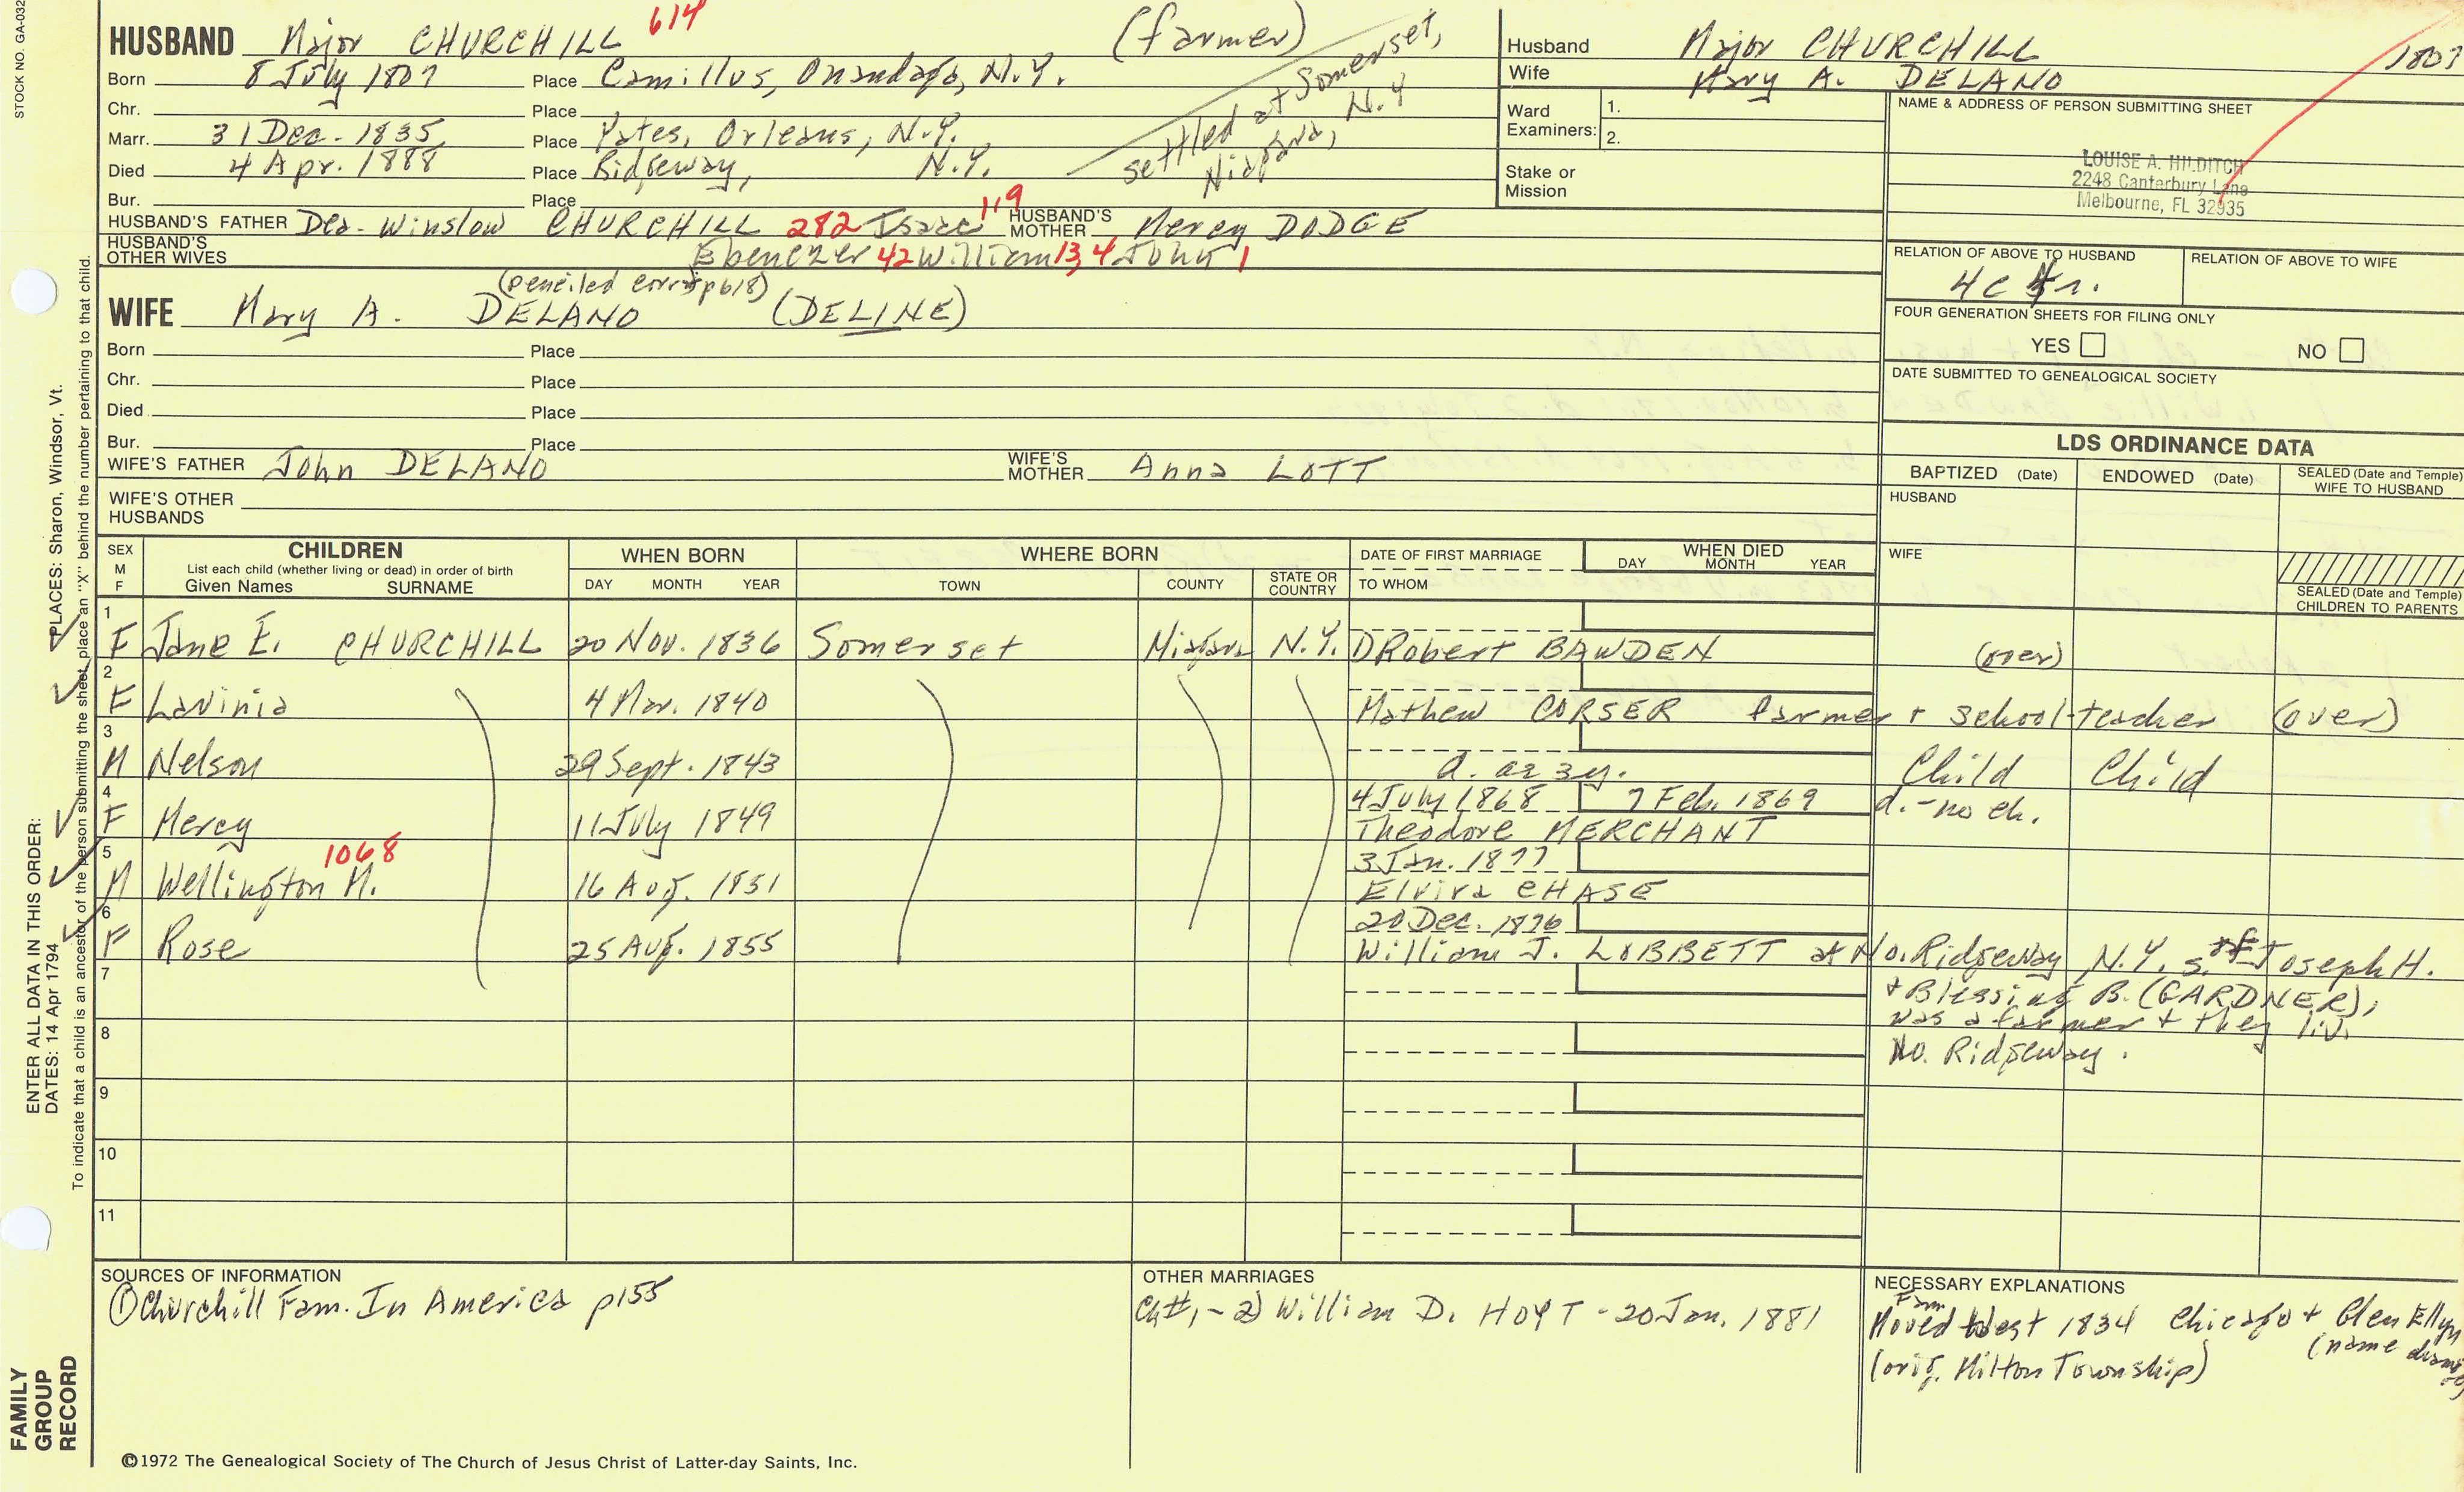 STOCK NO. GA-032
HUSBAND Major CHURCHILL 614 (farmer)
Born 8 July 1807 Place Camillus, Onondaga, N.Y.
Chr. Place
Marr. 31 Dec. 1835 Place Yates, Orleans, N.Y.
Died 4 Apr. 1888 Place Ridgeway, N.Y.
Bur. Place
settled at Somerset,
Niagara, N.Y
HUSBAND'S FATHER Dea. Winslow CHURCHILL 282 Isaac 119 HUSBAND'S MOTHER Mercy DODGE
HUSBAND'S OTHER WIVES Ebenezer 42 William 13, 4 John 1
(penciled corr p618)
WIFE Mary A. DELANO (DELINE)
Born Place
Chr. Place
Died Place
Bur. Place
WIFE'S FATHER John DELANO WIFE'S MOTHER Anna LOTT
WIFE'S OTHER HUSBANDS
Husband Major CHURCHILL 1807
Wife Mary A. DELANO
Ward Examiners: 1.
2.
Stake or Mission
NAME & ADDRESS OF PERSON SUBMITTING SHEET
LOUISE A. HILDITCH
2248 Canterbury Lane
Melbourne, FL 32935
RELATION OF ABOVE TO HUSBAND RELATION OF ABOVE TO WIFE
4c 4r.
FOUR GENERATION SHEETS FOR FILING ONLY
YES NO
DATE SUBMITTED TO GENEALOGICAL SOCIETY
LDS ORDINANCE DATA
BAPTIZED (Date) ENDOWED (Date) SEALED (Date and Temple) WIFE TO HUSBAND
HUSBAND
WIFE
SEALED (Date and Temple) CHILDREN TO PARENTS
SEX M F
CHILDREN
List each child (whether living or dead) in order of birth
Given Names SURNAME
WHEN BORN
DAY MONTH YEAR
WHERE BORN
TOWN COUNTY STATE OR COUNTRY
DATE OF FIRST MARRIAGE
TO WHOM
WHEN DIED
DAY MONTH YEAR
1 F Jane E. CHURCHILL 20 Nov. 1836 Somerset Niagara N.Y. DRobert BAWDEN (over)
2 F Lavinia 4 Mar. 1840 Mathew CORSER farmer + school-teacher (over)
3 M Nelson 29 Sept. 1843 d. ae 3y. Child Child
4 F Mercy 11 July 1849 4 July 1868 7 Feb. 1869 d.-no ch.
Theodore MERCHANT
5 M Wellington M. 1068 16 Aug. 1851 3 Jan. 1877
Elvira CHASE
6 F Rose 25 Aug. 1855 20 Dec. 1876
William J. LOBBETT at No. Ridgeway, N.Y. s. of Joseph H.
+ Blessing B. (GARDNER),
was a farmer + they liv.
No. Ridgeway.
7
8
9
10
11
SOURCES OF INFORMATION
① Churchill Fam. In America p155
OTHER MARRIAGES
Ch#1 - 2) William D. HOYT - 20 Jan. 1881
NECESSARY EXPLANATIONS
Fam. Moved West 1834 Chicago + Glen Ellyn
(orig. Milton Township) (name
PLACES: Sharon, Windsor, Vt.
ENTER ALL DATA IN THIS ORDER:
DATES: 14 Apr 1794
To indicate that a child is an ancestor of the person submitting the sheet, place an "X" behind the number pertaining to that child.
FAMILY GROUP RECORD
©1972 The Genealogical Society of The Church of Jesus Christ of Latter-day Saints, Inc.